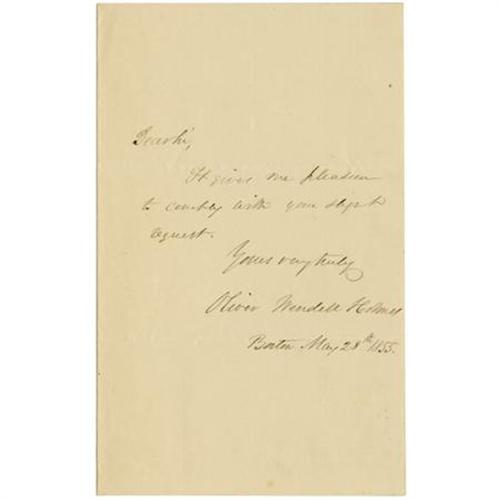 Dear Sir,
It gives me pleasure
to comply with your slight
request.
Yours very truly
Oliver Wendell Holmes
Boston May 28th 1855.